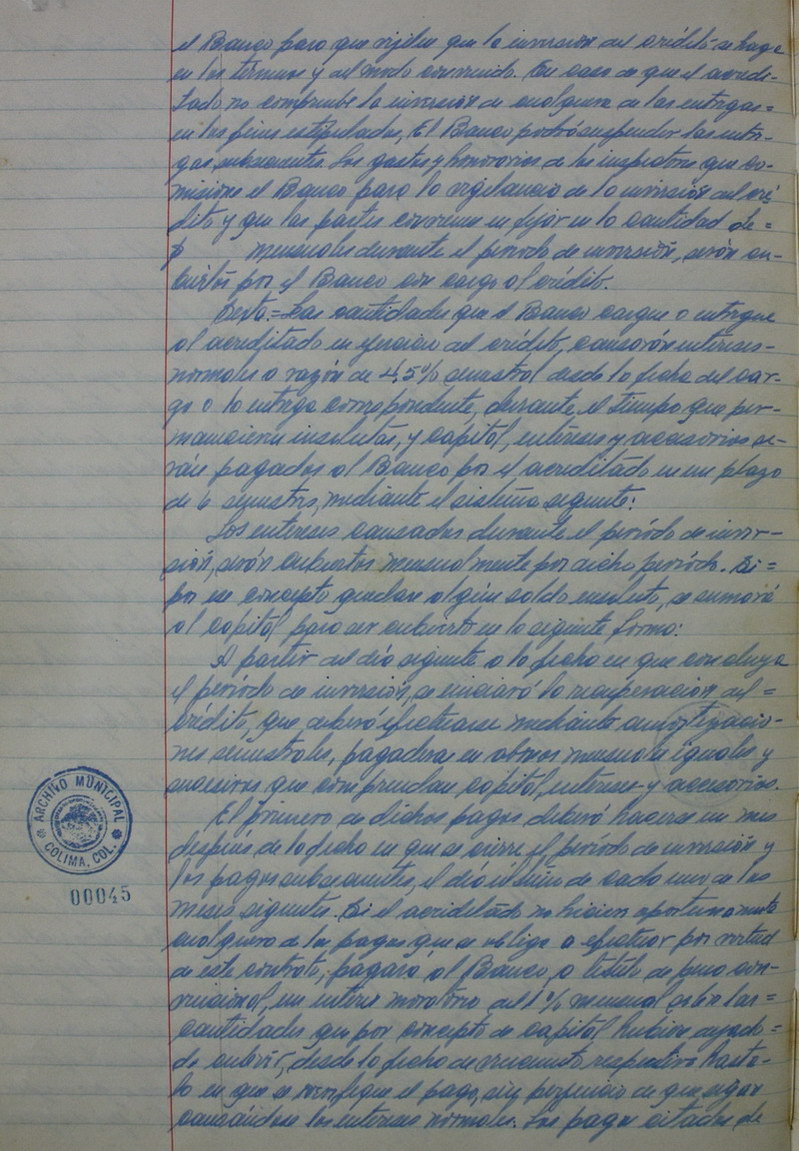 el Banco para que vigilen que la inversión del crédito se haga
en los términos y del modo convenido. En caso de que el acredi-
tado no compruebe la inversión de cualquiera de las entregas=
en los fines estipulados, El Banco podrá suspender las entre-
gas subsecuentes. Los gastos y honorarios de los inspectores que co-
misione el Banco para la vigilancia de la inversión del cré
dito y que las partes convienen en fijar en la cantidad de=
$ mensuales durante el período de inversión, serán cu-
biertos por el Banco con cargo al crédito.
Sexta.= Las cantidades que el Banco cargue o entregue
al acreditado en ejercicio del crédito, causarán intereses-
normales a razón de 4.5% semestral desde la fecha del car-
go o la entrega correspondiente, durante el tiempo que per-
manecieren insolutas, y capital, intereses y accesorios se-
rán pagados al Banco por el acreditado en un plazo
de 6 semestres, mediante el sistema siguiente:
Los intereses causados durante el período de inver-
sión, serán cubiertos mensualmente por dicho período. Si=
por ese concepto quedare algún saldo insoluto, se sumará
al capital para ser cubierto en la siguiente forma:
A partir del día siguiente a la fecha en que concluya
el período de inversión, se iniciará la recuperación del=
crédito, que deberá efectuarse mediante amortizacio-
nes semestrales, pagaderas en abonos mensuales iguales y
sucesivos que comprendan capital, intereses y accesorios.
El primero de dichos pagos deberá hacerse un mes
después de la fecha en que se cierre el período de inversión y
los pagos subsecuentes, el día último de cada uno de los
meses siguientes. Si el acreditado no hiciere oportunamente
cualquiera de los pagos que se obliga a efectuar por virtud
de este contrato, pagará al Banco, a título de pena con-
vencional, un interés moratorio del 1% mensual sobre las=
cantidades que por concepto de capital hubiere dejado=
de cubrir, desde la fecha de vencimiento respectivo hasta-
la en que se verifique el pago, sin perjuicio de que sigan
causándose los intereses normales. Los pagos citados de
ARCHIVO MUNICIPAL
COLIMA, COL.
00045